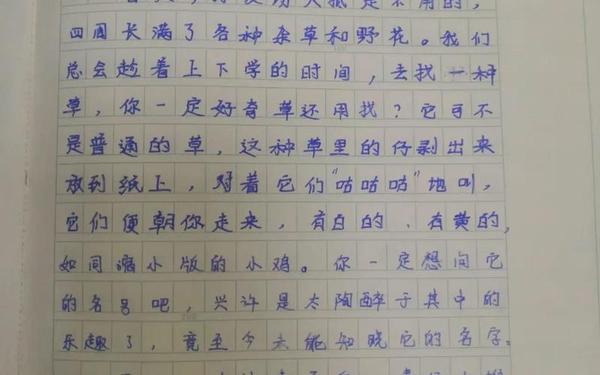 是不用的，
四周长满了各种杂草和野花。我们
总会趁着上下学的时间，去找一种
草，你一定好奇草还用找？它可不
是普通的草，这种草里的仔剥出来
放到纸上，对着它们“咕咕咕”地叫，
它们便朝你走来，有白的、有黄的，
如同缩小版的小鸡。你一定想问它
的名号吧，兴许是太陶醉于其中的
乐趣了，竟至今未能知晓它的名字。